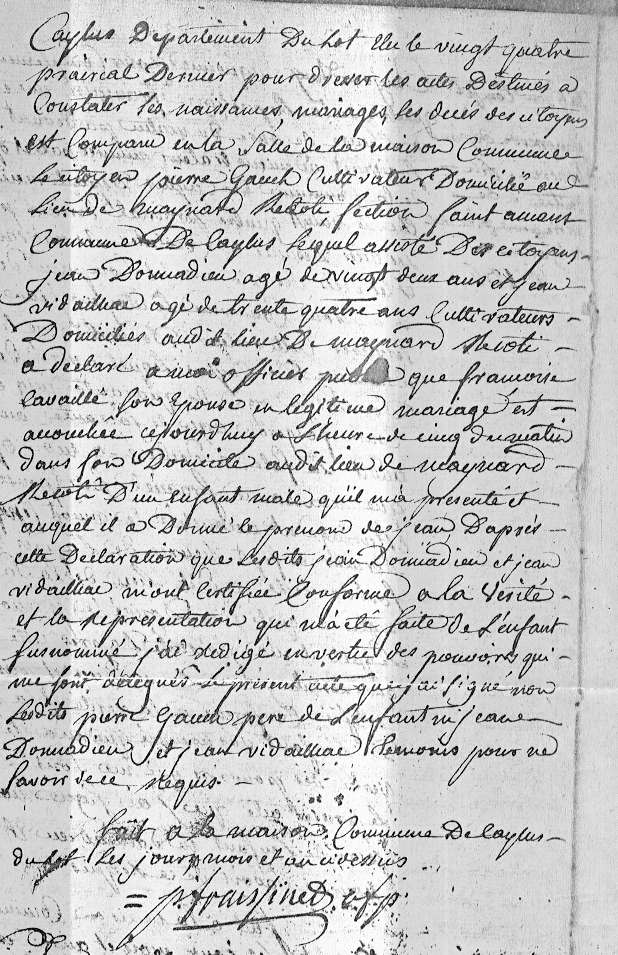 Caylus Departement Du lot Elu le vingt quatre
prairial Dernier pour dresser les actes Destinés a
Constater les naissances, mariages, les decés des citoyens
est Comparu en la Salle de la maison Commune
le citoyen pierre Gauch Cultivateur Domicilié au
lieu de maynard section saint amans
Commune De Caylus lequel assisté Des citoyens
jean Donnadieu agé de vingt deux ans et jean
vidailhac agé de trente quatre ans Cultivateurs
Domiciliés audit lieu De maynard
a declaré a moi officier public que francoise
lavaille son Epouse en legitime mariage est
accouchée cejourdhuy a L'heure de cinq du matin
dans son Domicile audit lieu de maynard
D'un enfant male qu'il m'a presenté et
auquel il a Donné le prenom de jean D'aprés
cette Declaration que lesdits jean Donnadieu et jean
vidailhac m'ont Certifiée Conforme a la Verité
et la Representation qui m'a été faite de L'enfant
susnommé j'ai Redigé en vertu des pouvoirs qui
me sont délegués le present acte que j'ai signé non
lesdits pierre Gauch pere de L'enfant ni jean
Donnadieu et jean vidailhac temoins pour ne
savoir de ce Requis
fait a la maison Commune De Caylus
du lot les jour, mois et an ci dessus
= pfraissinet. ofp.